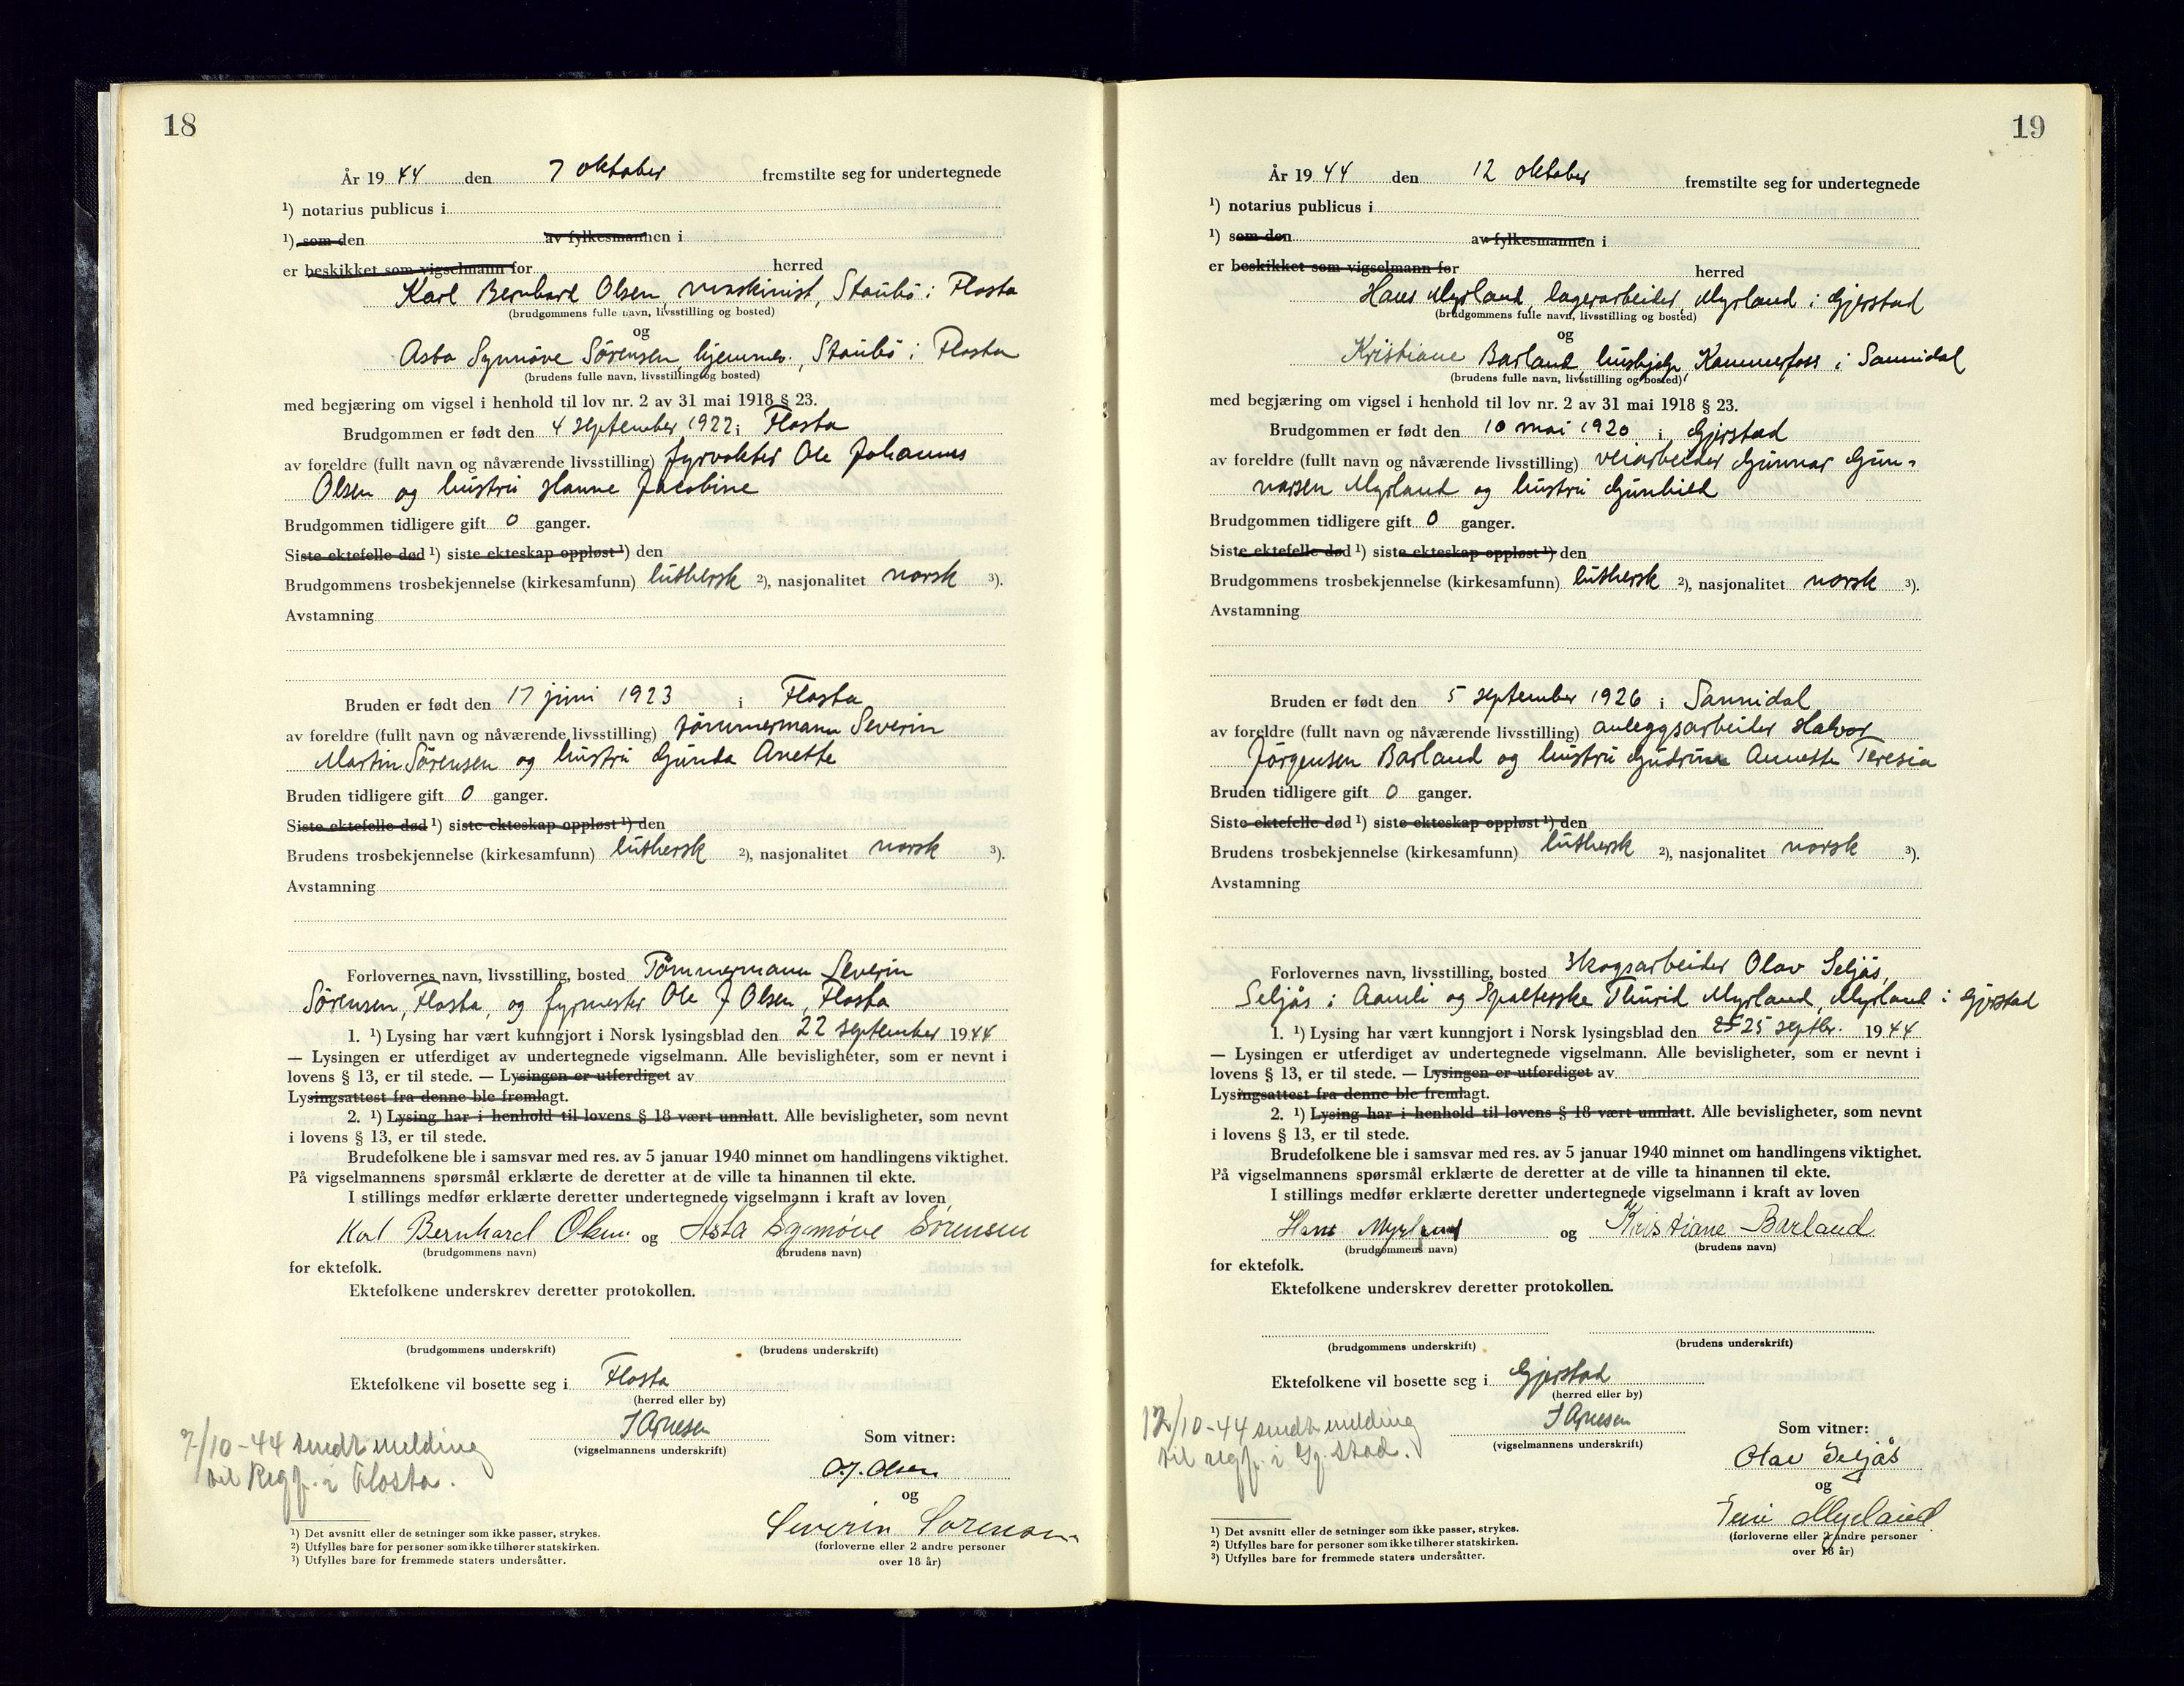 18
År 1944 den 7 oktober fremstilte seg for undertegnede
¹) notarius publicus i
¹) som den av fylkesmannen i
er beskikket som vigselmann for herred
Karl Bernhard Olsen, maskinist, Staubö i Flosta
(brudgommens fulle navn, livsstilling og bosted)
og
Asta Synnöve Sörensen, hjemmev., Staubö i Flosta
(brudens fulle navn, livsstilling og bosted)
med begjæring om vigsel i henhold til lov nr. 2 av 31 mai 1918 § 23.
Brudgommen er født den 4 september 1922 i Flosta
av foreldre (fullt navn og nåværende livsstilling) fyrvokter Ole Johannes
Olsen og hustru Hanne Jacobine
Brudgommen tidligere gift 0 ganger.
Siste ektefelle død ¹) siste ekteskap oppløst ¹) den
Brudgommens trosbekjennelse (kirkesamfunn) luthersk ²), nasjonalitet norsk ³).
Avstamning
Bruden er født den 17 juni 1923 i Flosta
av foreldre (fullt navn og nåværende livsstilling) tömmermann Severin
Martin Sörensen og hustru Gunda Anette
Bruden tidligere gift 0 ganger.
Siste ektefelle død ¹) siste ekteskap oppløst ¹) den
Brudens trosbekjennelse (kirkesamfunn) luthersk ²), nasjonalitet norsk ³).
Avstamning
Forlovernes navn, livsstilling, bosted Tömmermann Severin
Sörensen, Flosta, og fyrmester Ole J Olsen, Flosta
1. ¹) Lysing har vært kunngjort i Norsk lysingsblad den 22 september 1944
— Lysingen er utferdiget av undertegnede vigselmann. Alle bevisligheter, som er nevnt i
lovens § 13, er til stede. — Lysingen er utferdiget av
Lysingsattest fra denne ble fremlagt.
2. ¹) Lysing har i henhold til lovens § 18 vært unnlatt. Alle bevisligheter, som nevnt
i lovens § 13, er til stede.
Brudefolkene ble i samsvar med res. av 5 januar 1940 minnet om handlingens viktighet.
På vigselmannens spørsmål erklærte de deretter at de ville ta hinannen til ekte.
I stillings medfør erklærte deretter undertegnede vigselmann i kraft av loven
Karl Bernhard Olsen og Asta Synnöve Sörensen
(brudgommens navn) (brudens navn)
for ektefolk.
Ektefolkene underskrev deretter protokollen.
(brudgommens underskrift) (brudens underskrift)
Ektefolkene vil bosette seg i Flosta
(herred eller by)
(vigselmannens underskrift) Som vitner:
7/10-44 sendt melding
til Regf. i Flosta.
O.J. Olsen
og
Severin Sörensen
(forloverne eller 2 andre personer
over 18 år)
¹) Det avsnitt eller de setninger som ikke passer, strykes.
²) Utfylles bare for personer som ikke tilhører statskirken.
³) Utfylles bare for fremmede staters undersåtter.
19
År 1944 den 12 oktober fremstilte seg for undertegnede
¹) notarius publicus i
¹) som den av fylkesmannen i
er beskikket som vigselmann for herred
Hans Myrland, lagerarbeider, Myrland i Gjerstad
(brudgommens fulle navn, livsstilling og bosted)
og
Kristiane Barland, hushjelp, Kammerfoss i Sannidal
(brudens fulle navn, livsstilling og bosted)
med begjæring om vigsel i henhold til lov nr. 2 av 31 mai 1918 § 23.
Brudgommen er født den 10 mai 1920 i Gjerstad
av foreldre (fullt navn og nåværende livsstilling) veiarbeider Gunnar Gun-
narsen Myrland og hustru Gunhild
Brudgommen tidligere gift 0 ganger.
Siste ektefelle død ¹) siste ekteskap oppløst ¹) den
Brudgommens trosbekjennelse (kirkesamfunn) luthersk ²), nasjonalitet norsk ³).
Avstamning
Bruden er født den 5 september 1926 i Sannidal
av foreldre (fullt navn og nåværende livsstilling) anleggsarbeider Halvor
Jörgensen Barland og hustru Gudrun Annette Teresia
Bruden tidligere gift 0 ganger.
Siste ektefelle død ¹) siste ekteskap oppløst ¹) den
Brudens trosbekjennelse (kirkesamfunn) luthersk ²), nasjonalitet norsk ³).
Avstamning
Forlovernes navn, livsstilling, bosted Skogsarbeider Olav Seljås,
Seljås i Aamli og Thurid Myrland, Myrland i Gjerstad
1. ¹) Lysing har vært kunngjort i Norsk lysingsblad den 25 septbr. 1944
— Lysingen er utferdiget av undertegnede vigselmann. Alle bevisligheter, som er nevnt i
lovens § 13, er til stede. — Lysingen er utferdiget av
Lysingsattest fra denne ble fremlagt.
2. ¹) Lysing har i henhold til lovens § 18 vært unnlatt. Alle bevisligheter, som nevnt
i lovens § 13, er til stede.
Brudefolkene ble i samsvar med res. av 5 januar 1940 minnet om handlingens viktighet.
På vigselmannens spørsmål erklærte de deretter at de ville ta hinannen til ekte.
I stillings medfør erklærte deretter undertegnede vigselmann i kraft av loven
Hans Myrland og Kristiane Barland
(brudgommens navn) (brudens navn)
for ektefolk.
Ektefolkene underskrev deretter protokollen.
(brudgommens underskrift) (brudens underskrift)
Ektefolkene vil bosette seg i Gjerstad
(herred eller by)
(vigselmannens underskrift) Som vitner:
12/10-44 sendt melding
til regf. i Gj.stad.
Olav Seljås
og
Myrland
(forloverne eller 2 andre personer
over 18 år)
¹) Det avsnitt eller de setninger som ikke passer, strykes.
²) Utfylles bare for personer som ikke tilhører statskirken.
³) Utfylles bare for fremmede staters undersåtter.